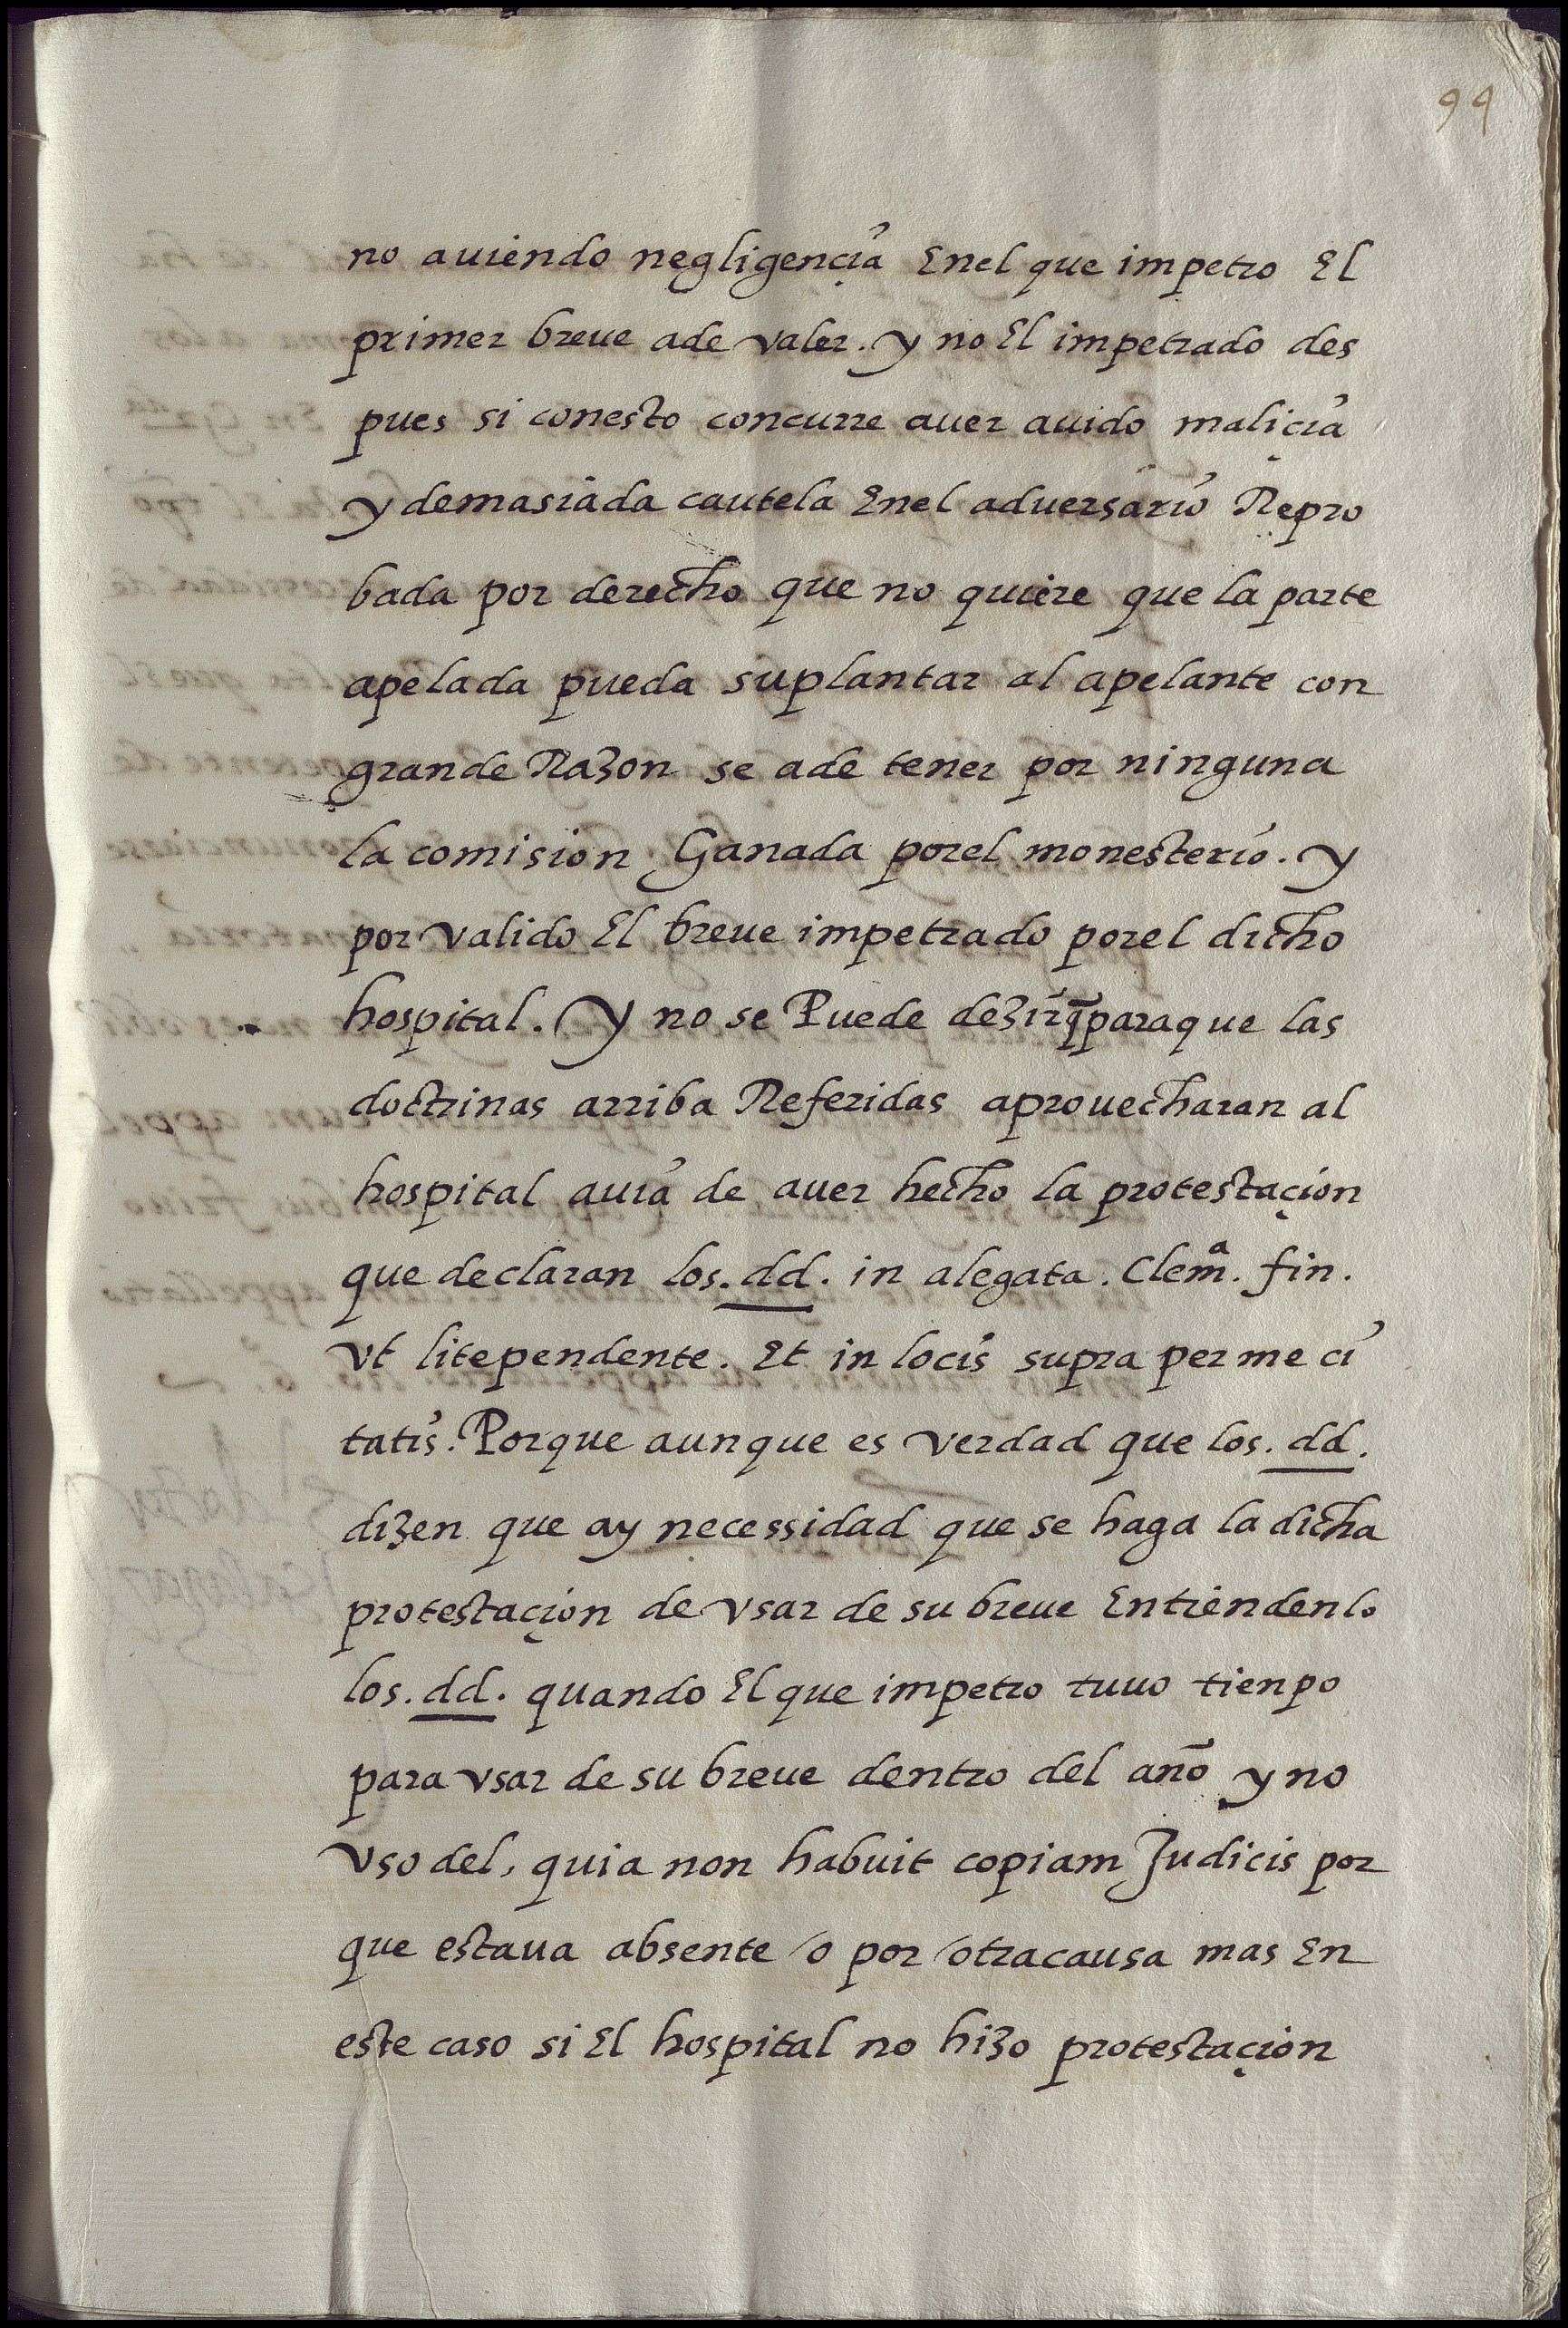 99
no auiendo negligençia Enel que impetro El
primer breue ade valer. y no El impetrado des
pues si conesto concurre auer auido maliçia
y demasiada cautela Enel aduersario Repro
bada por derecho que no quiere que la parte
apelada pueda suplantar al apelante con
grande Razon se ade tener por ninguna
la comision Ganada porel monesterio. y
por valido El breue impetrado porel dicho
hospital. y no se Puede dezir q̄ paraque las
doctrinas arriba Referidas aprouecharan al
hospital auia de auer hecho la protestaçion
que declaran los. dd. in alegata. Clemᵃ. fin.
vt litependente. Et in locis supra per me ci
tatis. Porque aunque es verdad que los. dd.
dizen que ay necessidad que se haga la dicha
protestaçion de vsar de su breue Entiendenlo
los. dd. quando El que impetro tuuo tienpo
para vsar de su breue dentro del año y no
vso del, quia non habuit copiam Judicis por
que estaua absente o por otracausa mas En
este caso si El hospital no hizo protestaçion